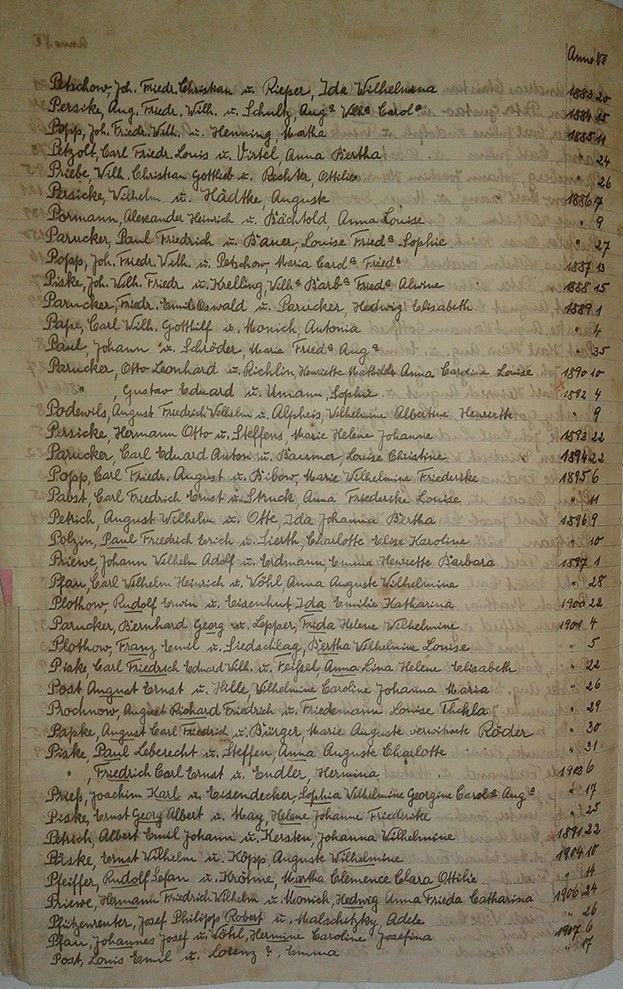 Anno №
Petschow, Joh. Friedr. Christian u. Rieper, Ida Wilhelmina 1883 20
Persike, Aug. Friedr. Wilh. u. Schultz, Aug.ᵃ Wilh.ᵃ Carol.ᵃ 1884 15
Popp, Joh. Friedr. Wilh. u. Henning, Martha 1885 11
Petzolt, Carl Friedr. Louis u. Virtel, Anna Bertha " 24
Priebe, Wilh. Christian Gottlieb u. Rechter, Ottilie " 26
Persicke, Wilhelm u. Hädtke, Auguste 1886 7
Pormann, Alexander Heinrich u. Bächtold, Anna Louise " 9
Parucker, Paul Friedrich u. Bauer, Louise Fried.ᵃ Sophie " 27
Popp, Joh. Friedr. Wilh. u. Petschow, Maria Carol.ᵃ Fried.ᵃ 1887 13
Piske, Joh. Wilh. Friedr. u. Krelling, Wilh.ᵃ Barb.ᵃ Fried.ᵃ Alwine 1888 15
Parucker, Friedr. Emil Oswald u. Parucker, Hedwig Elisabeth 1889 1
Pape, Carl Wilh. Gotthilf u. Monich Antonia " 4
Paul, Johann u. Schröder, Marie Fried.ᵃ Aug.ᵃ " 35
Parucker, Otto Leonhard u. Richlin, Henriette Mathilde Anna Caroline Louise 1890 10
" , Gustav Eduard u. Umann, Sophie 1892 4
Podewils, August Friedrich Wilhelm u. Alpheis, Wilhelmine Albertine Henriette " 9
Persicke, Hermann Otto u. Steffens, Marie Helene Johanne 1893 22
Parucker Carl Eduard Anton u. Baumer, Louise Christine 1894 22
Popp, Carl Friedr. August u. Bibow, Marie Wilhelmine Friederike 1895 6
Pabst Carl Friedrich Ernst u. Struck, Anna Friedericke Louise " 11
Petrich, August Wilhelm u. Otte, Ida Johanna Bertha 1896 9
Polzin, Paul Friedrich Erich u. Sierth, Charlotte Elise Karoline " 10
Priewe, Johann Wilhelm Adolf u. Erdmann, Emma Henriette Barbara 1897 1
Pfau, Carl Wilhelm Heinrich u. Wöhl, Anna Auguste Wilhelmine " 28
Plothow, Rudolf Erwin u. Eisenhut, Ida Emilie Katharina 1900 22
Parucker, Bernhard Georg u. Lepper, Frida Helene Wilhelmine 1901 4
Plothow, Franz Emil u. Liedschlag, Bertha Wilhelmine Louise " 5
Piske Carl Friedrich Eduard Wilh. u. Feissel, Anna Lina Helene Elisabeth " 22
Post August Ernst u. Hille, Wilhelmine Caroline Johanna Maria " 26
Prochnow, August Richard Friedrich u. Friedemann Louise Thekla " 29
Papke, August Carl Friedrich u. Bürger, Marie Auguste verwitwete Röder " 30
Piske, Paul Leberecht u. Steffen, Anna Auguste Charlotte " 31
" , Friedrich Carl Ernst u. Endler, Hermina 1903 6
Priess, Joachim Karl u. Eisendecker, Sophia Wilhelmine Georgine Carol.ᵃ Aug.ᵃ " 17
Piske, Ernst Georg Albert u. May, Helene Johanne Friederike " 25
Petrich, Albert Emil Johann u. Kersten, Johanna Wilhelmine 1891 22
Piske, Ernst Wilhelm u. Köpp, Auguste Wilhelmine 1904 10
Pfeiffer, Rudolf u. Kröhne, Martha Clemence Clara Ottilie " 14
Priewe, Hermann Friedrich Wilhelm u. Monich, Hedwig Anna Frieda Catharina 1906 24
Pfützenreuter, Josef Philipp Robert u. Malschitzky, Adele " 26
Pfau, Johannes Josef u. Wöhl, Hermine Caroline Josefina 1907 6
Post, Louis Emil u. Lorenz ?, Emma " 17